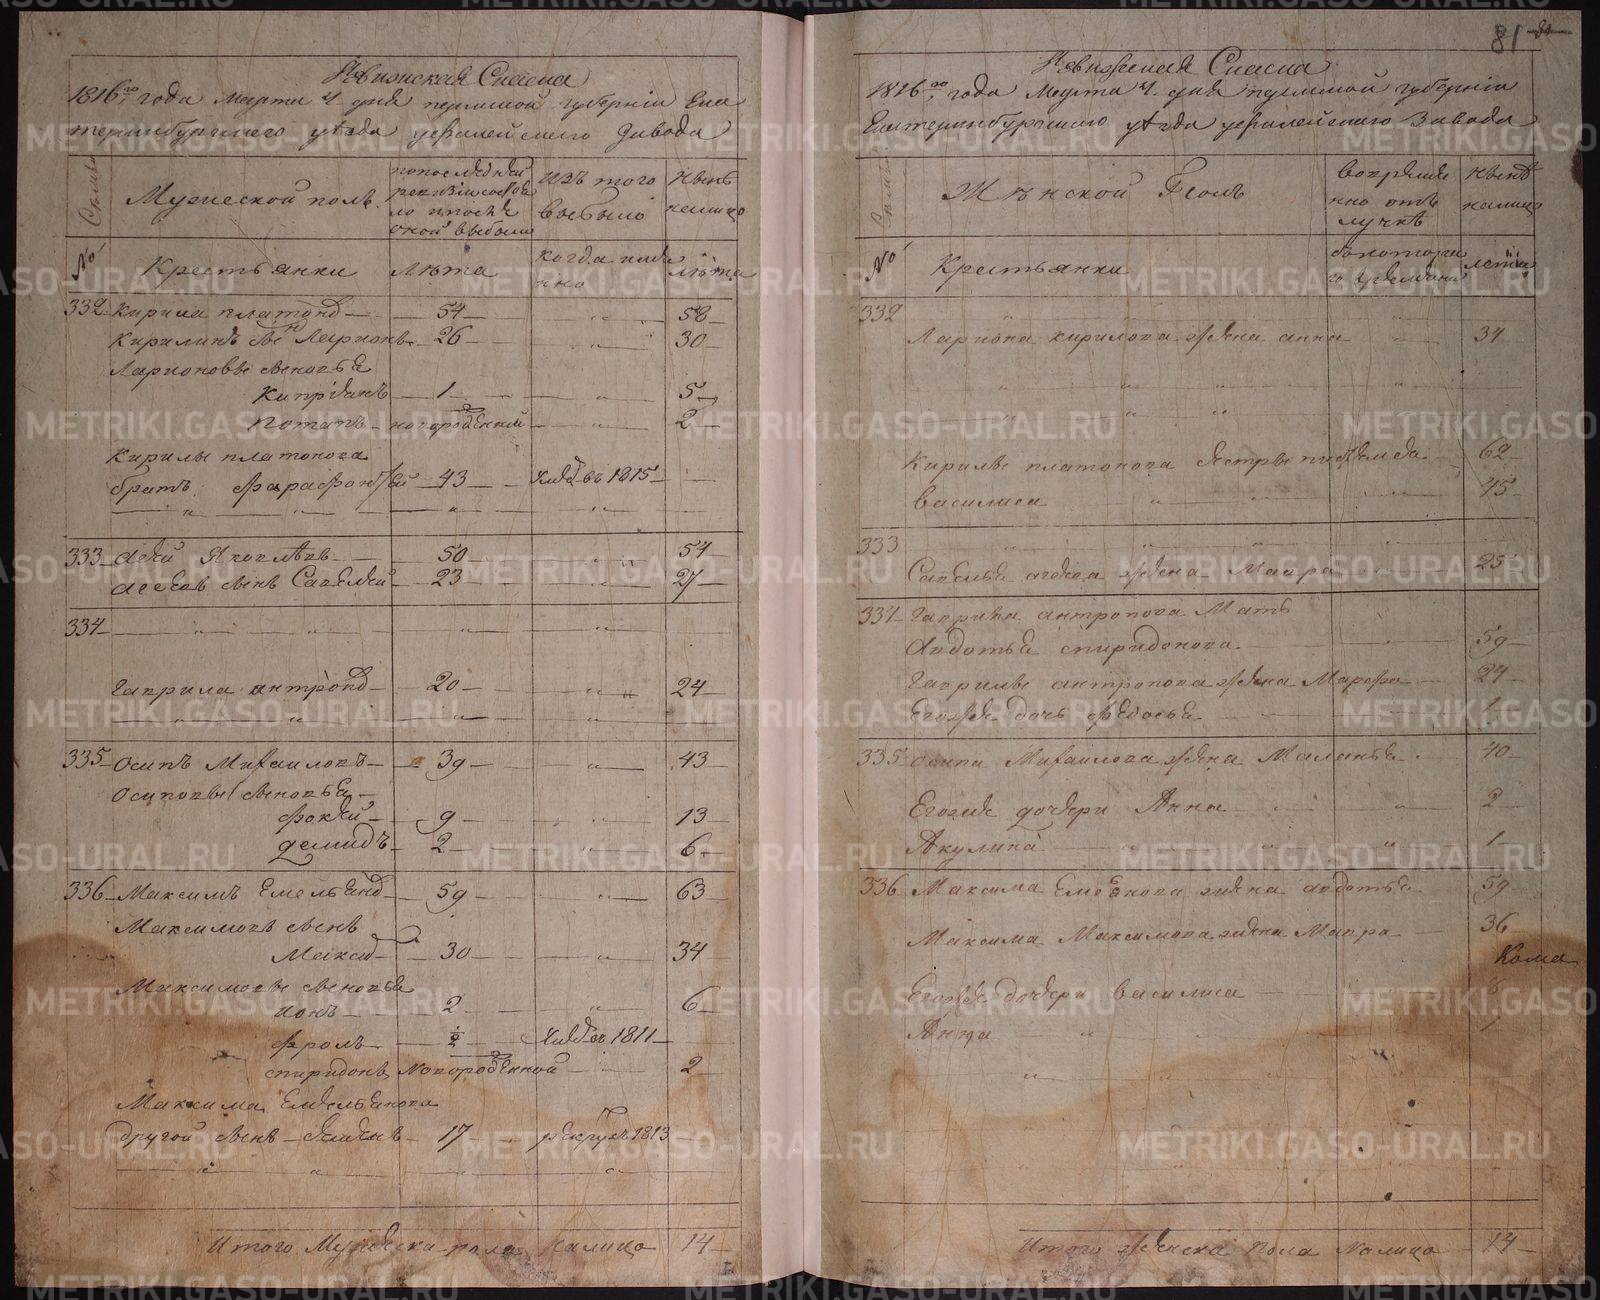 81
Ревижская Сказка
1816го года Марта 4 дня пермской губернїи Ека
теринбургскаго уѣзда уфалейскаго Завода
Семьи
Мужеской полъ
попоследней ревизїи состояло ипосле оной выбыло
Изъ того выбыло
Нынѣ налицо
№
Крестьянки
Лѣта
когда имянно
лѣта
332 Кирила платонов 54 " 58
Кириликъ сынъ Ларионъ 26 " 30
Ларионовы сыновья
Киприянъ 1 " 5
Потапъ новорожденной " 2
Кирилы платонова
братъ Фарафонтей 43 Умре въ 1815
333 Асей Яковлевъ 50 " 54
Асеевъ сынъ Савелей 23 " 27
334 " "
Гаврила антропов 20 " 24
335 Осипъ Михаиловъ 39 " 43
Осиповы сыновья
фокей 9 " 13
демидъ 2 " 6
336 Максимъ Емельянов 59 " 63
Максимовъ сынъ
Максим 30 " 34
Максимовы сыновья
ионъ 2 " 6
фролъ ½ Умре въ 1811
спиридонъ Новорожденной 2
Максима Емельянова
другой сынъ 17 рекрутъ 1813
Итого Мужеска пола Налицо 14
Ревижская Сказка
1816го года Марта 4 дня пермской губернїи
Екатеринбургскаго уѣзда уфалейскаго Завода
Семьи
Женской Полъ
вовременно отлучкѣ
Нынѣ налицо
№
Крестьянки
лѣта
332
Лариона кирилова жена анна " 34
Кирилы платонова сестры 62
василиса " 45
333
Савелья асеева жена Мавра 25
334 Гаврила антропова Мать
Авдотья спиридонова 59
Гаврилы антропова жена Марфа 24
Егоже дочь федосья 1
335 Осипа Михаилова жена Маланья 40
Егоже дочери Анна " 2
Акулина " 1
336 Максима Емельянова жена авдотья 59
Максима Максимова жена Мавра 36
Егоже дочери василиса 8
Анна "
Итого женска Пола Налицо 14
METRIKI.GASO-URAL.RU